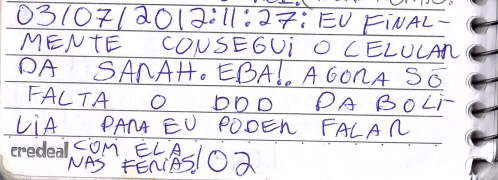 03/07/2012:11:27: EU FINAL-
MENTE CONSEGUI O CELULAR
DA SARAH. EBA!. AGORA SÓ
FALTA O DDD DA BOLÍ-
VIA PARA EU PODER FALAR
credeal COM ELA
NAS FÉRIAS! 02